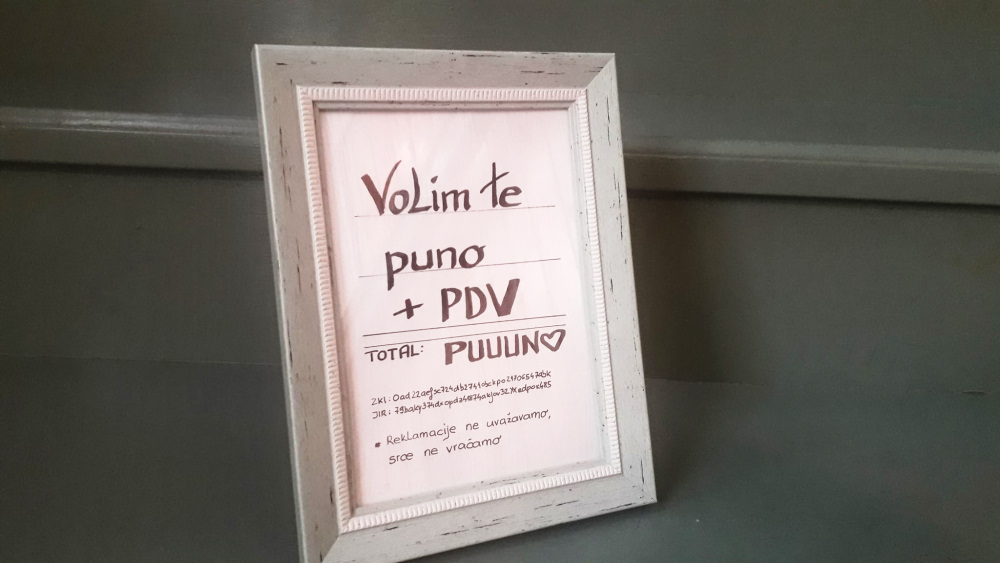 Volim te
puno
+ PDV
TOTAL: PUUUN♡
ZKI:
JIR:
* Reklamacije ne uvažavamo,
srce ne vraćamo